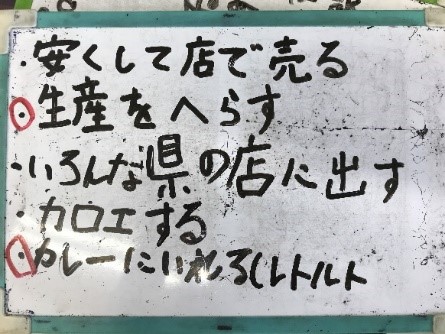 ・安くして店で売る
・生産をへらす
・いろんな県の店に出す
・カロエする
・カレーにいれる(レトルト